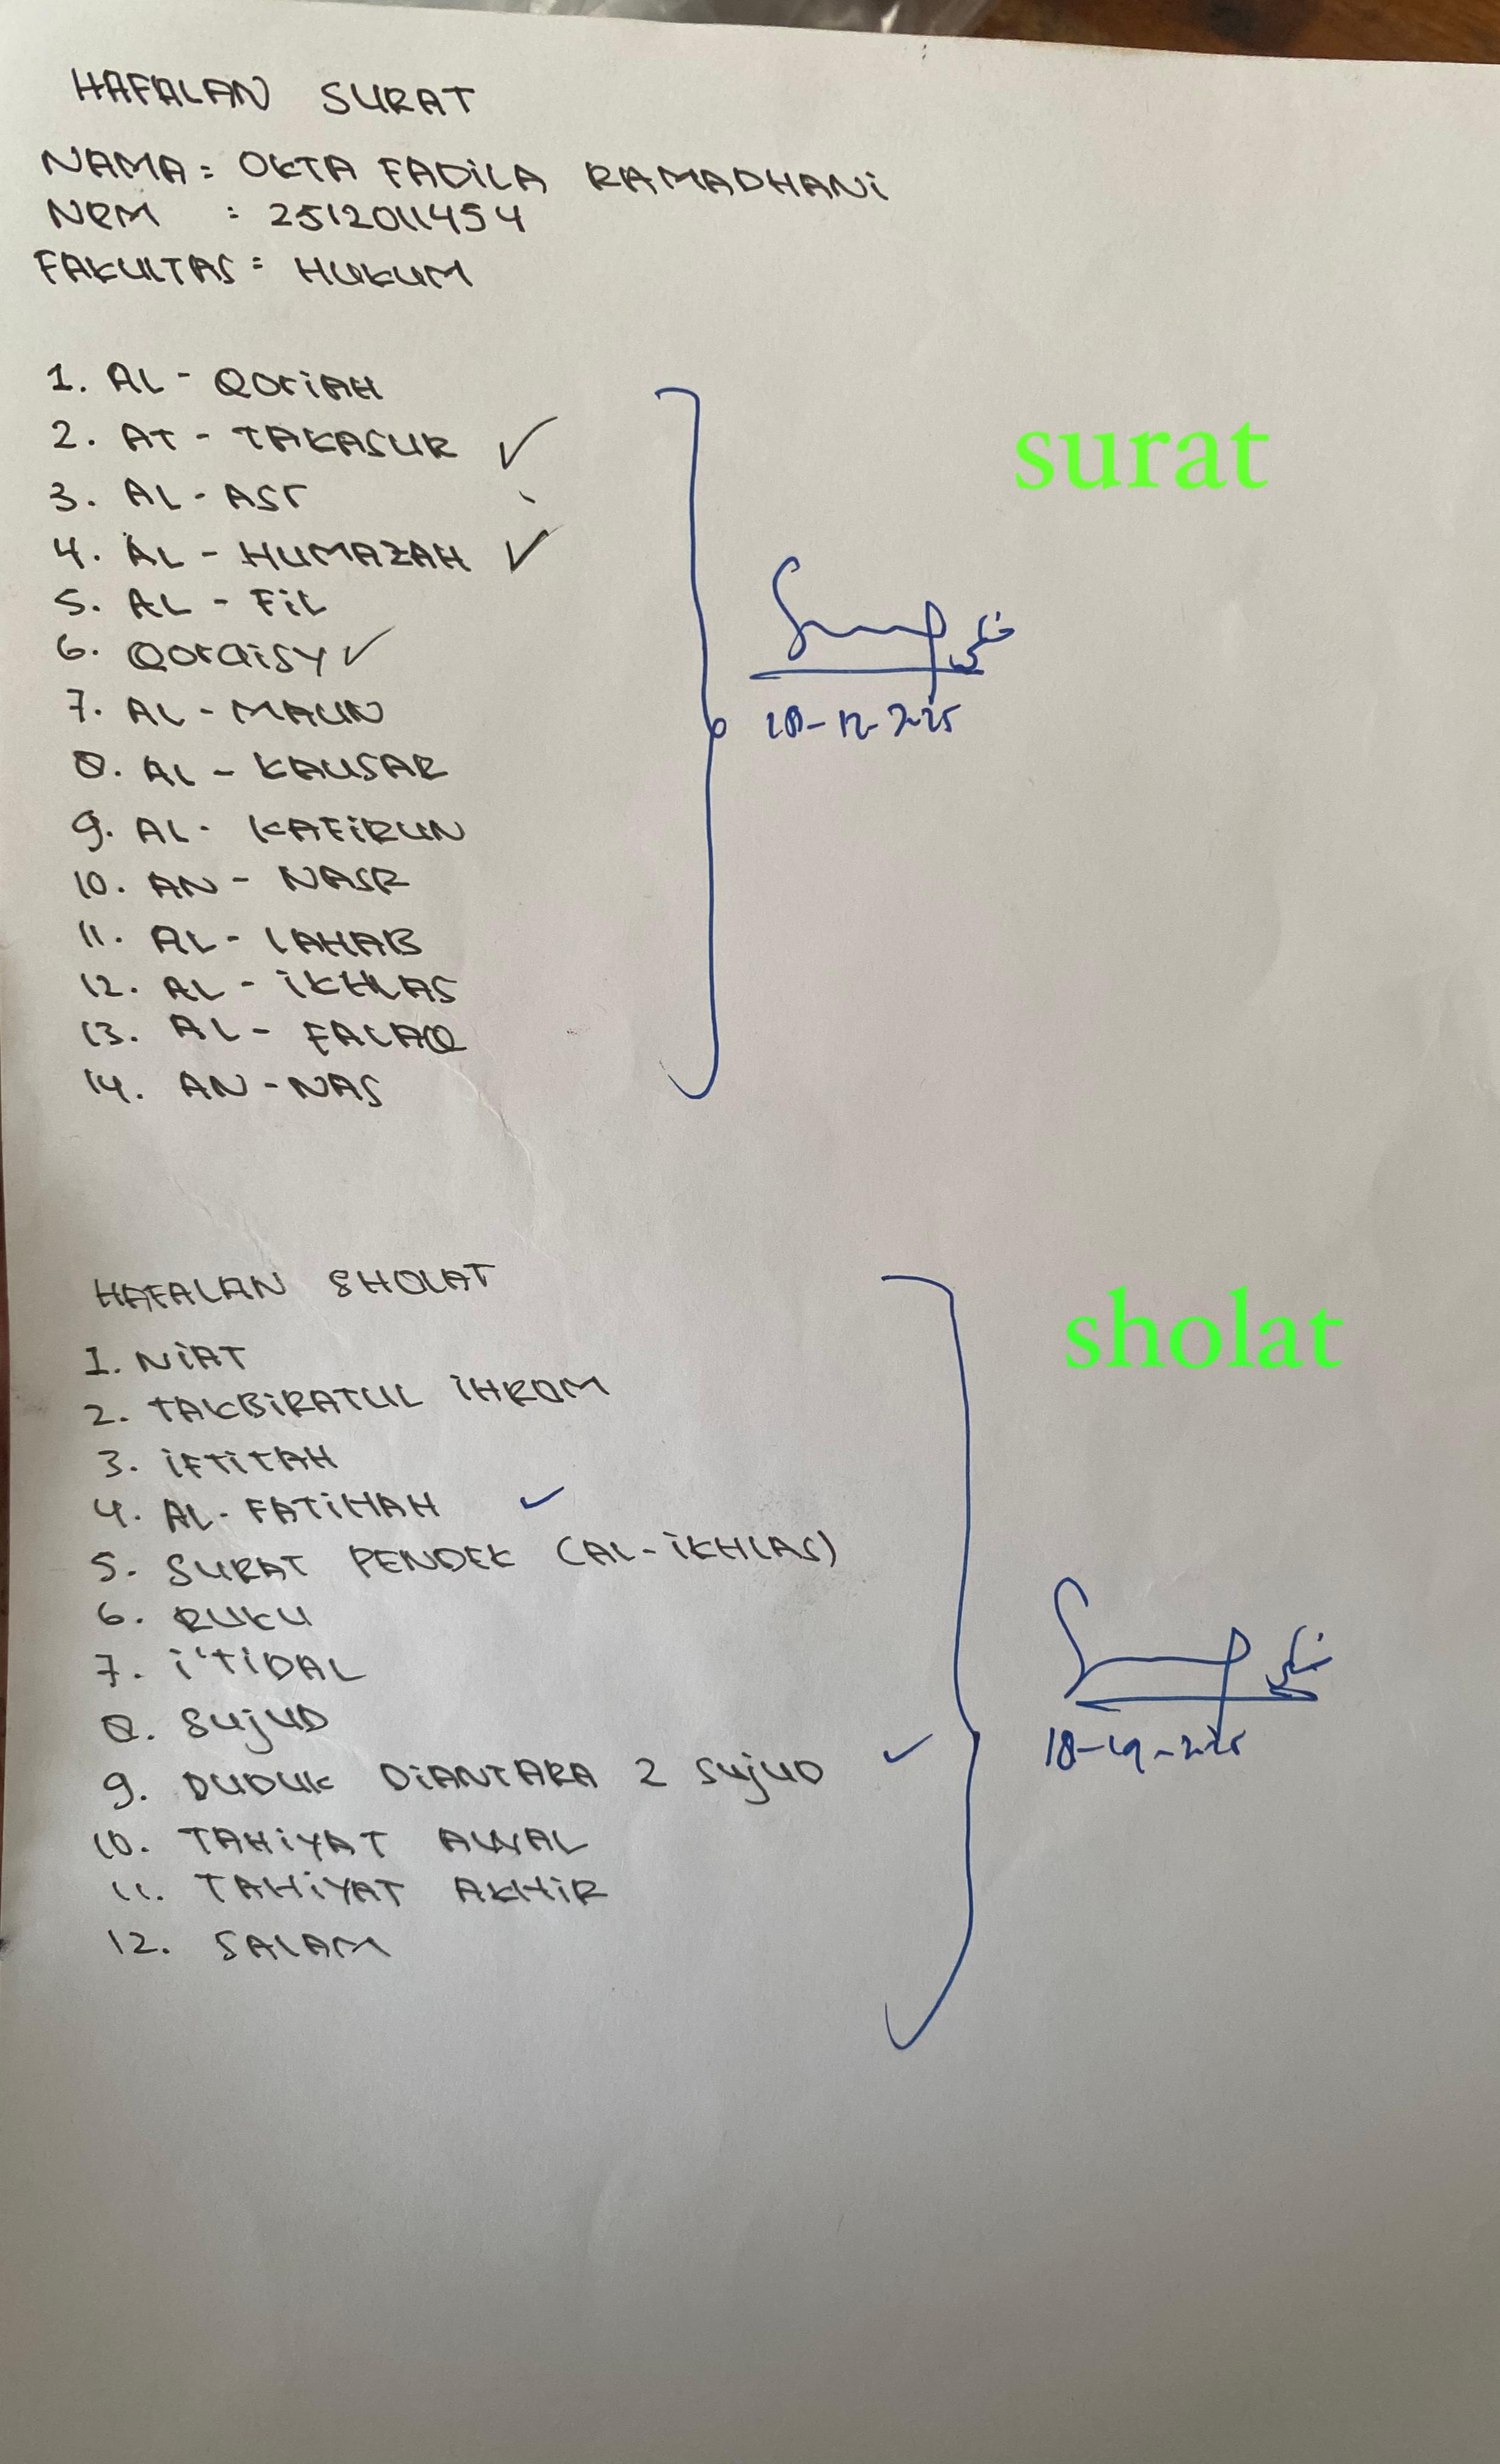 HAFALAN SURAT
NAMA: OKTA FADILA RAMADHANI
NPM : 2512011454
FAKULTAS: HUKUM
1. AL - QORIAH
2. AT - TAKASUR ✓
3. AL - ASR
4. AL - HUMAZAH ✓
5. AL - FIL
6. QORAISY ✓
7. AL - MAUN
8. AL - KAUSAR
9. AL - KAFIRUN
10. AN - NASR
11. AL - LAHAB
12. AL - IKHLAS
13. AL - FALAQ
14. AN - NAS
surat
18-12-2025
HAFALAN SHOLAT
1. NIAT
2. TAKBIRATUL IHROM
3. IFTITAH
4. AL-FATIHAH ✓
5. SURAT PENDEK (AL-IKHLAS)
6. RUKU
7. I'TIDAL
8. SUJUD
9. DUDUK DIANTARA 2 SUJUD ✓
10. TAHIYAT AWAL
11. TAHIYAT AKHIR
12. SALAM
sholat